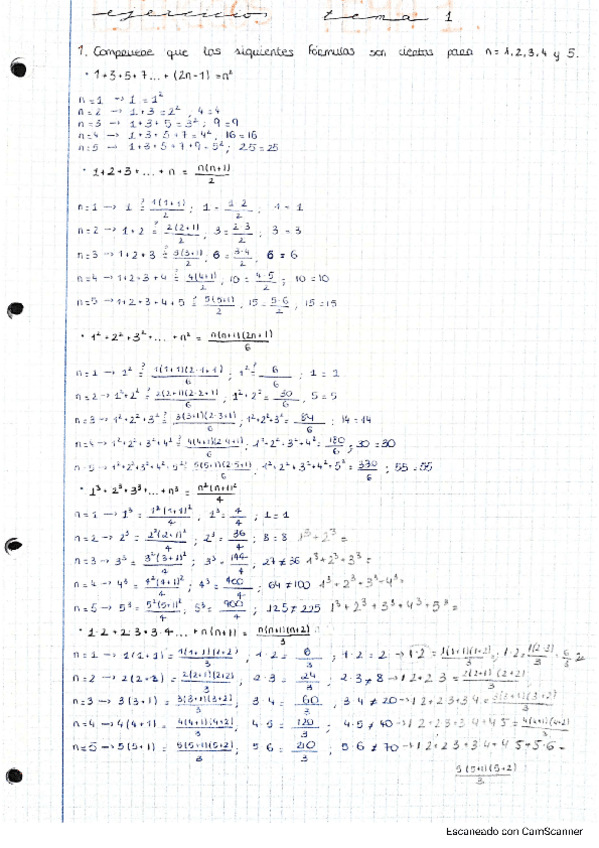 ejercicios tema 1
1. Comprueba que las siguientes fórmulas son ciertas para n = 1, 2, 3, 4 y 5.
· 1+3+5+7...+(2n-1)=n²
n=1 → 1 = 1²
n=2 → 1+3 = 2² ; 4=4
n=3 → 1+3+5 = 3² ; 9=9
n=4 → 1+3+5+7 = 4² ; 16=16
n=5 → 1+3+5+7+9 = 5² ; 25=25
· 1+2+3+...+n = n(n+1)/2
n=1 → 1 ≟ 1(1+1)/2 ; 1 = 1·2/2 ; 1=1
n=2 → 1+2 ≟ 2(2+1)/2 ; 3 = 2·3/2 ; 3=3
n=3 → 1+2+3 ≟ 3(3+1)/2 ; 6 = 3·4/2 ; 6=6
n=4 → 1+2+3+4 ≟ 4(4+1)/2 ; 10 = 4·5/2 ; 10=10
n=5 → 1+2+3+4+5 ≟ 5(5+1)/2 ; 15 = 5·6/2 ; 15=15
· 1²+2²+3²+...+n² = n(n+1)(2n+1)/6
n=1 → 1² ≟ 1(1+1)(2·1+1)/6 ; 1² ≟ 6/6 ; 1=1
n=2 → 1²+2² ≟ 2(2+1)(2·2+1)/6 ; 1²+2² = 30/6 ; 5=5
n=3 → 1²+2²+3² ≟ 3(3+1)(2·3+1)/6 ; 1²+2²+3² = 84/6 ; 14=14
n=4 → 1²+2²+3²+4² ≟ 4(4+1)(2·4+1)/6 ; 1²+2²+3²+4² = 180/6 ; 30=30
n=5 → 1²+2²+3²+4²+5² ≟ 5(5+1)(2·5+1)/6 ; 1²+2²+3²+4²+5² = 330/6 ; 55=55
· 1³+2³+3³+...+n³ = n²(n+1)²/4
n=1 → 1³ = 1²(1+1)²/4 ; 1³ = 4/4 ; 1=1
n=2 → 2³ = 2²(2+1)²/4 ; 2³ = 36/4 ; 8=8 1³+2³=
n=3 → 3³ = 3²(3+1)²/4 ; 3³ = 144/4 ; 27≠36 1³+2³+3³=
n=4 → 4³ = 4²(4+1)²/4 ; 4³ = 400/4 ; 64≠100 1³+2³+3³+4³=
n=5 → 5³ = 5²(5+1)²/4 ; 5³ = 900/4 ; 125≠225 1³+2³+3³+4³+5³=
· 1·2+2·3+3·4...+n(n+1) = n(n+1)(n+2)/3
n=1 → 1(1+1) = 1(1+1)(1+2)/3 ; 1·2 = 6/3 ; 1·2=2 → 1·2 = 1(1+1)(1+2)/3 ; 1·2 = 1(2·3)/3 = 6/3
n=2 → 2(2+1) = 2(2+1)(2+2)/3 ; 2·3 = 24/3 ; 2·3≠8 → 1·2+2·3 = 2(2+1)(2+2)/3
n=3 → 3(3+1) = 3(3+1)(3+2)/3 ; 3·4 = 60/3 ; 3·4≠20 → 1·2+2·3+3·4 = 3(3+1)(3+2)/3
n=4 → 4(4+1) = 4(4+1)(4+2)/3 ; 4·5 = 120/3 ; 4·5≠40 → 1·2+2·3+3·4+4·5 = 4(4+1)(4+2)/3
n=5 → 5(5+1) = 5(5+1)(5+2)/3 ; 5·6 = 210/3 ; 5·6≠70 → 1·2+2·3+3·4+4·5+5·6 =
5(5+1)(5+2)/3
Escaneado con CamScanner